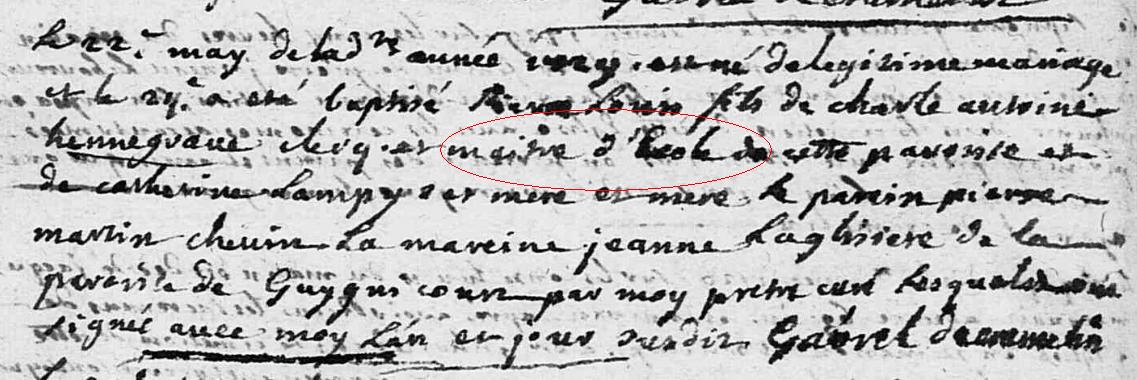 le 22.e may de lad.te année 1729 est né de legitime mariage
et le 24.e a eté baptisé Pierre Louis fils de charle antoine
hennegrave clerq et maitre d'Ecole de cette paroisse et
de catherine Lampy et mere et mere le parein pierre
martin chevin La mareine jeanne Laglisiere de la
paroisse de Guyguicourt par moy pretre curé Lesquels ont
signé avec moy L'an et jour susdit Gabriel